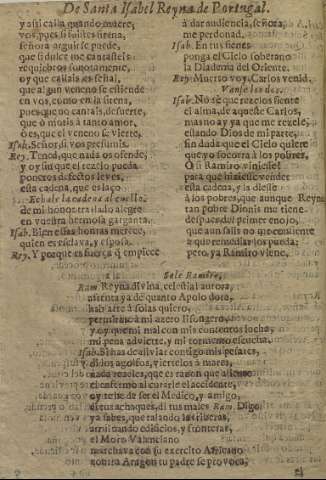 De Santa Isabel Reyna de Portugal.
y assi calla quando muere,
vos, pues si fuistes sirena,
señora arguirse puede,
que si dulce me cantasteis
requiebros sonoramente,
oy que callais es señal,
que algun veneno se esconde
en vos, como en la sirena,
pues que no cantais, de suerte,
que ò muere à tanto amor,
ò es, que el veneno se vierte.
Isab. Señor, si vos presumis.
Rey. Tened, que nada os ofende,
y oy sin que el rezelo pueda
poneros defectos leves,
esta cadena, que es lazo
Echale la cadena al cuello.
de mi honor tra lado alegre
en vuestra hermosa garganta.
Isab. Bien estas honras merece,
quien es esclava, y esposa.
Rey. Y porque es fuerça q̃ empiece
à dar audiencia, señora,
me perdonad.
Isab. En tus sienes
ponga el Cielo soberano
la Diadema del Oriente.
Rey. Muerto voy, Carlos venid.
Vanse los dos.
Isab. No sè que rezelos siente
el alma, de aqueste Carlos,
mas no ay ya que me rezele,
estando Dios de mi parte,
sin duda que el Cielo quiere
que yo socorra à los pobres,
O si Ramiro viniesse
para que hiziesse vender
esta cadena, y la diesse
à los pobres, que aunque Reyna
tan pobre Dionis me tiene
despues del primer enojo,
que aun salir no me consiente
à que remediar los pueda;
pero ya Ramiro viene.
Sale Ramiro.
Ram. Reyna divina, celestial aurora,
afrenta ya de quanto Apolo dora,
hablarte à solas quiero,
permitaso à mi azero lisongero,
y oy que mi mal con mis contentos lucha,
mi pena advierte, y mi tormento escucha.
Isab. Si has de aliviar contigo mis pesares,
y dellos agostos, viertelos à mares,
nada rezeles, que es razon que aliente
el enfermo al curarle el accidente,
oy tente de ser el Medico, y amigo,
di tus achaques, di tus males Ram. Digo:
ya sabes, que talando las riberas,
arruinando edificios, y fronteras,
el Moro Valenciano
marchava con su exercito Africano
contra Aragon tu padre se provoca,